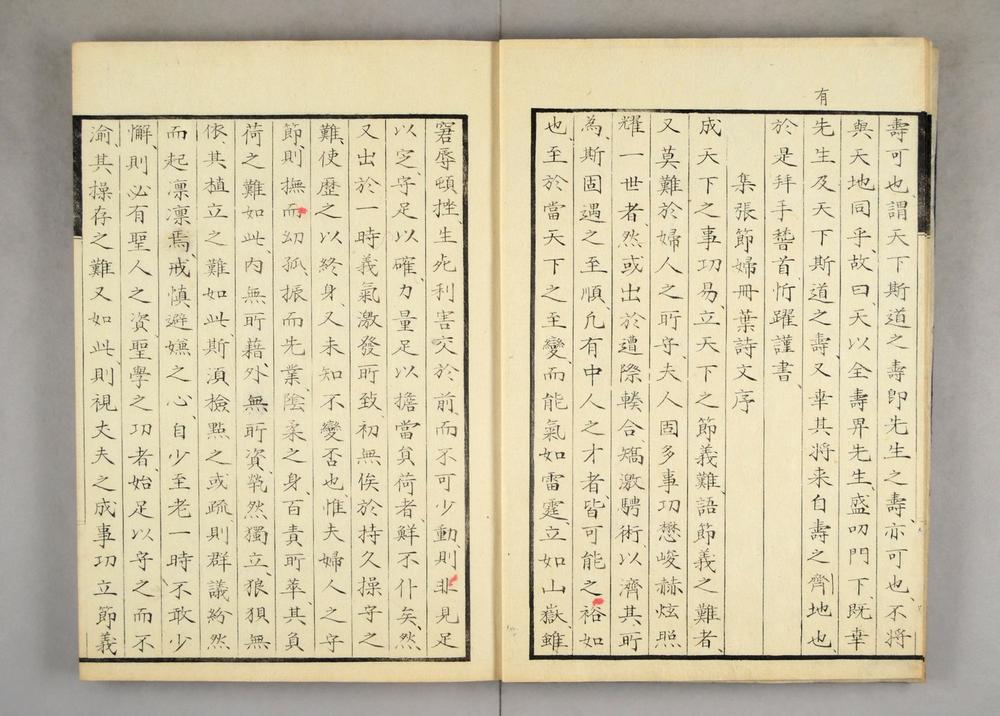 有
壽可也、謂天下斯道之壽即先生之壽、亦可也、不將
與天地同乎、故曰、天以全壽畀先生、盛叨門下、既幸
先生及天下斯道之壽、又幸其將来自壽之齊地也、
於是拜手𥡴首忻躍謹書、
集張節婦冊葉詩文序
成天下之事功易、立天下之節義難、語節義之難者、
又莫難於婦人之所守、夫人固多事功懋峻赫炫照
耀一世者、然或出於遭際輳合、矯激騁術、以濟其所
為、斯固遇之至順、凢有中人之才者、皆可能之、裕如
也、至於當天下之至變、而能氣如雷霆、立如山嶽、雖
窘辱頓挫生死利害交於前、而不可少動、則非見足
以㝎、守足以確、力量足以擔當負荷者、鮮不仆矣、然
又出於一時義氣激發所致、初無俟於持久操守之
難、使歷之以終身、又未知不變否也、惟夫婦人之守
節、則撫而幼孤、振而先業、隂柔之身、百責所萃、其負
荷之難如此、内無所藉、外無所資、煢然獨立、狼狽無
依、其植立之難如此、斯須檢點之或疏、則群議紛然
而起、凛凛焉、戒慎避嫌之心、自少至老、一時不敢少
懈、則必有聖人之資聖學之功者、始足以守之而不
渝、其操存之難又如此、則視丈夫之成事功立節義